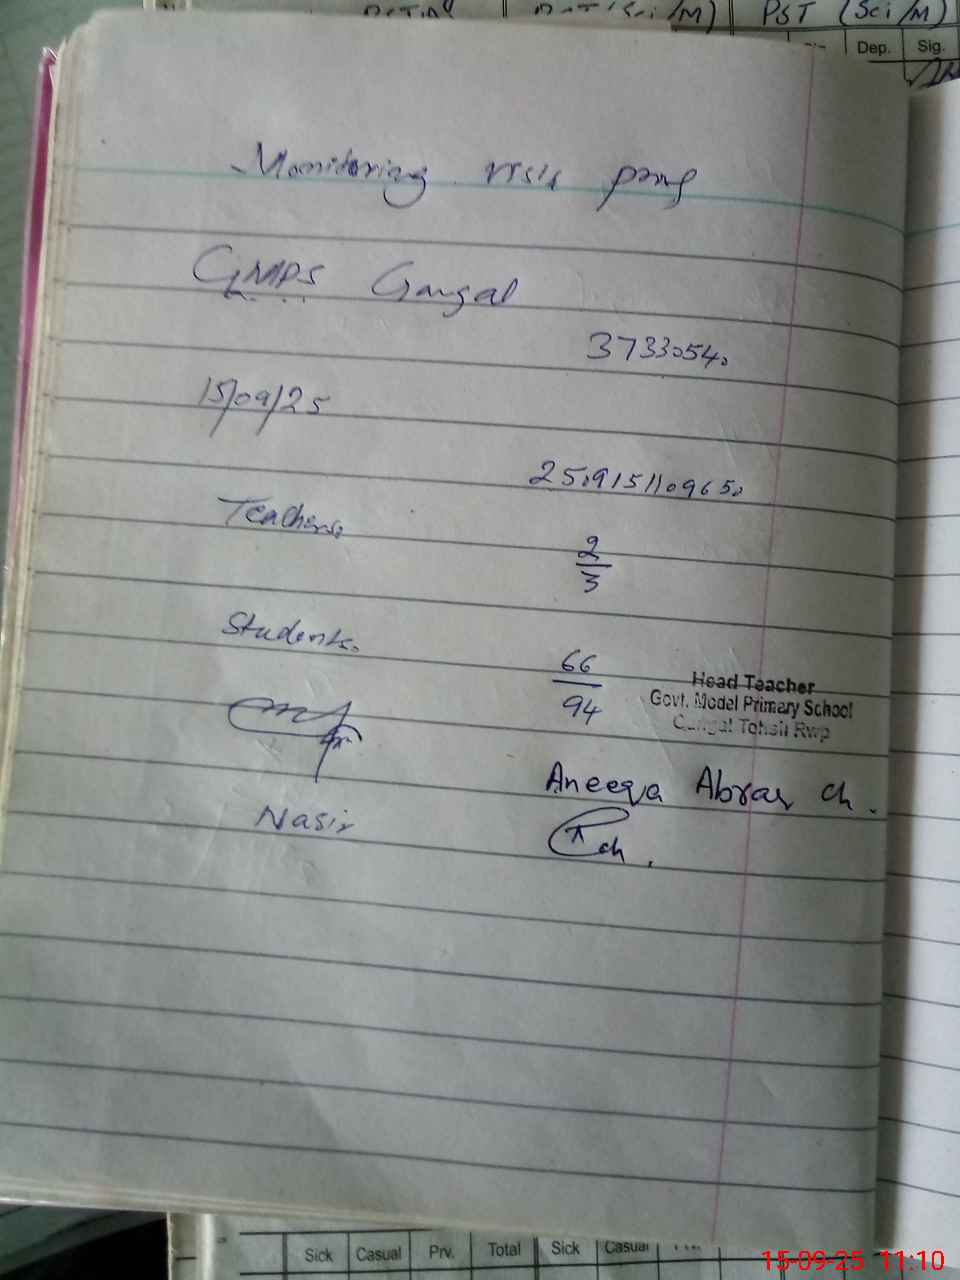 PST (Sci/M)
Dep. Sig.
Monitoring visit prof
GMPS Gangal
37330540
15/09/25
2509151109650
Teachers.
2/3
Students.
66/94
Head Teacher
Govt. Model Primary School
Gangal Tehsil Rwp
Aneeqa Abrar ch.
Nasir
ch.
Sick Casual Prv. Total Sick Casual
15-09-25 11:10